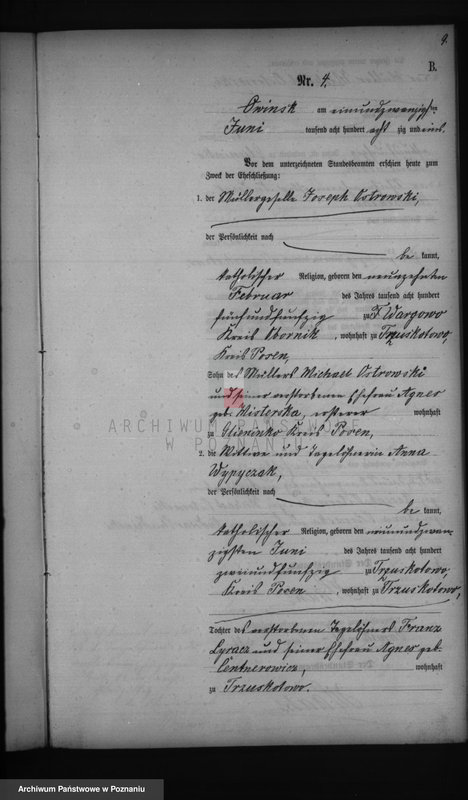 9.
B.
Nr. 4.
Owinsk am einundzwanzigsten
Juni tausend acht hundert acht zig und eins.
Vor dem unterzeichneten Standesbeamten erschien heute zum
Zweck der Eheschließung:
1. der Müllergeselle Joseph Ostrowski,
der Persönlichkeit nach
be kannt,
katholischer Religion, geboren den neunzehnten
Februar des Jahres tausend acht hundert
fünfundfünfzig zu Wargowo
Kreis Obornik, wohnhaft zu Trzuskotowo,
Kreis Posen,
Sohn des Müllers Michael Ostrowski
und seiner verstorbenen Ehefrau Agnes
geb. Wisterska, ersterer wohnhaft
zu Glieninko Kreis Posen,
ARCHIWUM PAŃSTWOWE
W POZNANIU
2. die Wittwe und Tagelöhnerin Anna
Wypyczak,
der Persönlichkeit nach
be kannt,
katholischer Religion, geboren den neunundzwan-
zigsten Juni des Jahres tausend acht hundert
zweiundfünfzig zu Trzuskotowo,
Kreis Posen, wohnhaft zu Trzuskotowo,
Tochter des verstorbenen Tagelöhners Franz
Lyracz und seiner Ehefrau Agnes geb.
Centnerowicz, wohnhaft
zu Trzuskotowo.
Archiwum Państwowe w Poznaniu